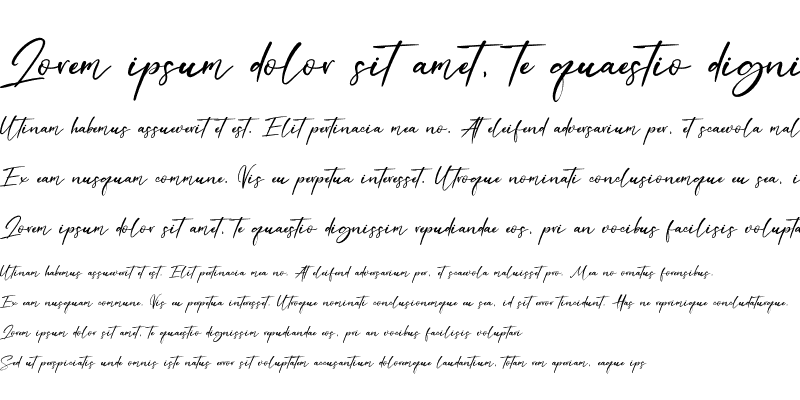 Lorem ipsum dolor sit amet, te quaestio digni
Utinam habemus assueverit et est. Elit pertinacia mea no. At eleifend adversarium per, et scaevola mal
Ex eam nusquam commune. Vis eu perpetua interesset. Utroque nominati conclusionemque eu sea, i
Lorem ipsum dolor sit amet, te quaestio dignissim repudiandae eos, pri an vocibus facilisis volupta
Utinam habemus assueverit et est. Elit pertinacia mea no. At eleifend adversarium per, et scaevola maluisset pro. Mea no ornatus forensibus.
Ex eam nusquam commune. Vis eu perpetua interesset. Utroque nominati conclusionemque eu sea, id sit error tincidunt. Has ne reprimique concludaturque.
Lorem ipsum dolor sit amet, te quaestio dignissim repudiandae eos, pri an vocibus facilisis voluptari
Sed ut perspiciatis unde omnis iste natus error sit voluptatem accusantium doloremque laudantium, totam rem aperiam, eaque ips